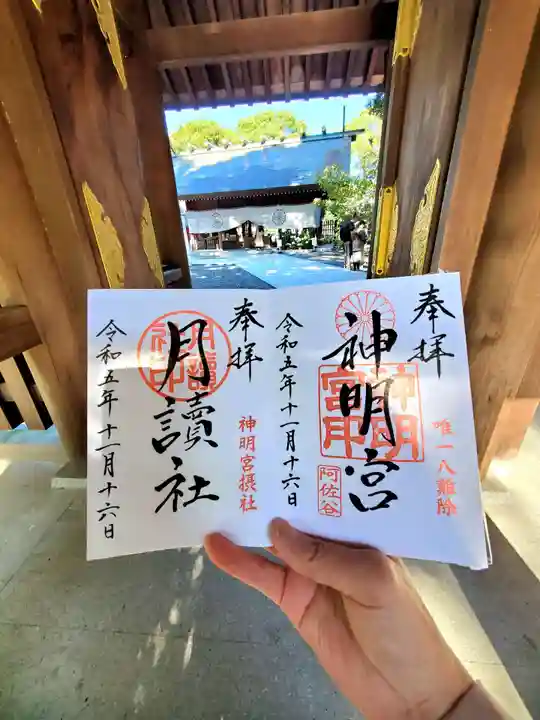 奉拝
唯一八難除
神明宮
神明宮印
阿佐谷
令和五年十一月十六日
奉拝
神明宮摂社
月讀社
令和五年十一月十六日